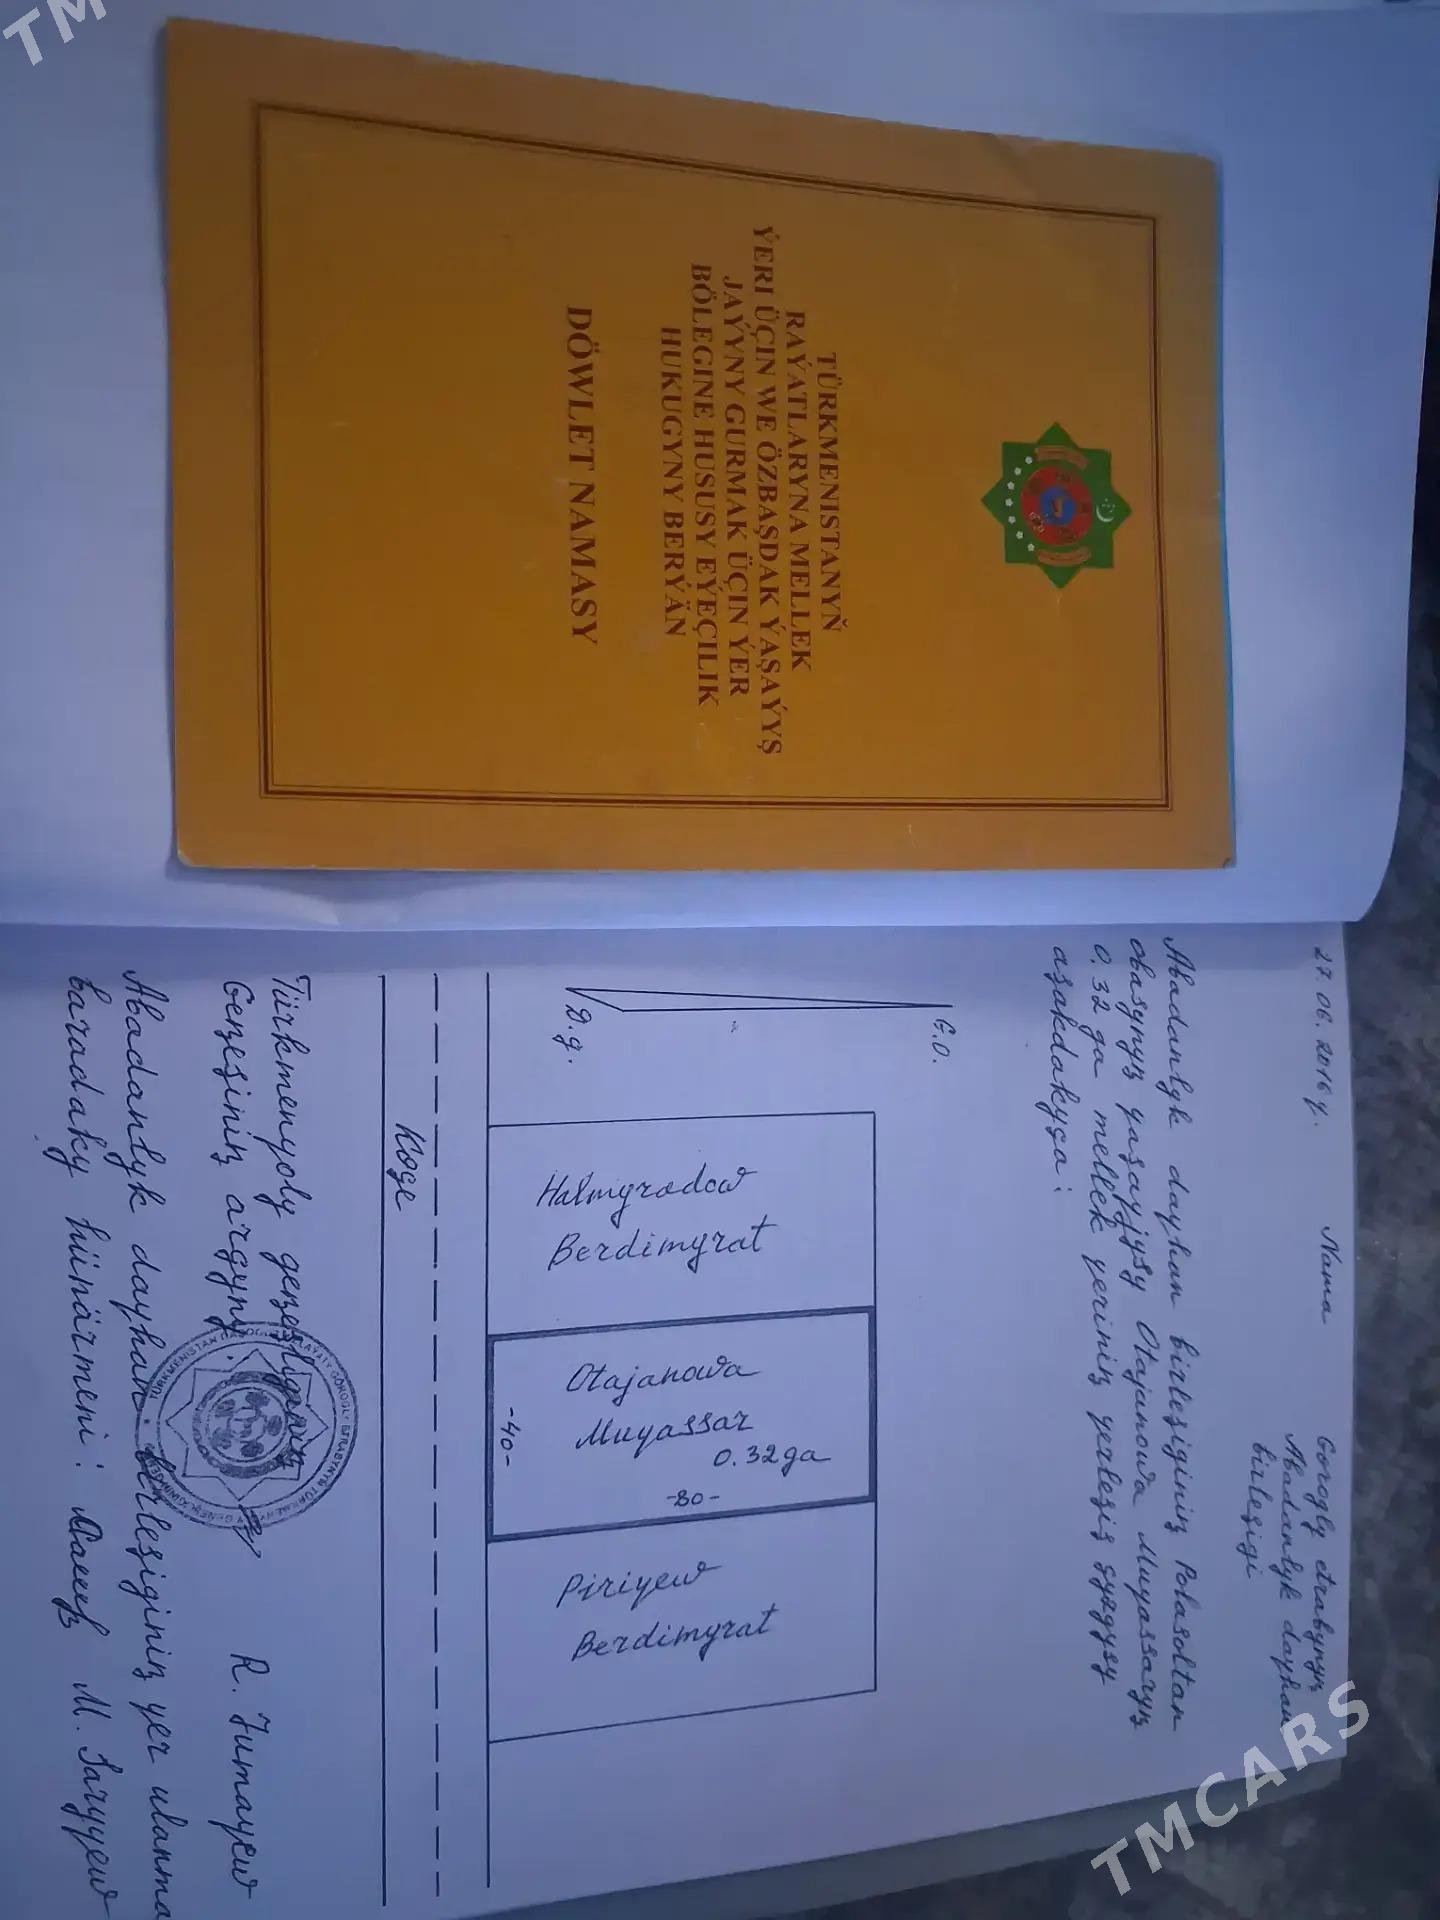 TÜRKMENISTANYŇ
RAÝATLARYNA MELLEK
ÝERI ÜÇIN WE ÖZBAŞDAK ÝAŞAÝYŞ
JAÝYNY GURMAK ÜÇIN ÝER
BÖLEGINE HUSUSY EÝEÇILIK
HUKUGYNY BERÝÄN
DÖWLET NAMASY
27.06.2016 ý.
Nama
Gorogly etrabynyň
Abadanlyk daýhan
birleşigi
Abadanlyk daýhan birleşiginiň Polasoltan
obasynyň ýaşaýjysy Otajanowa Muýassaryň
0.32 ga mellek ýeriniň ýerleşiş
aşakdakyça:
G.O.
D.g.
Halmyradow
Berdimyrat
Otajanowa
Muyassar
0.32ga
-80-
-40-
Piriyew
Berdimyrat
Köçe
Türkmenýoly geňeşliginiň
Geňeşiniň arçyny
R. Jumaýew
Abadanlyk daýhan birleşiginiň ýer ulanma
baradaky hünärmeni:
M. Saryýew
TMCARS
TM